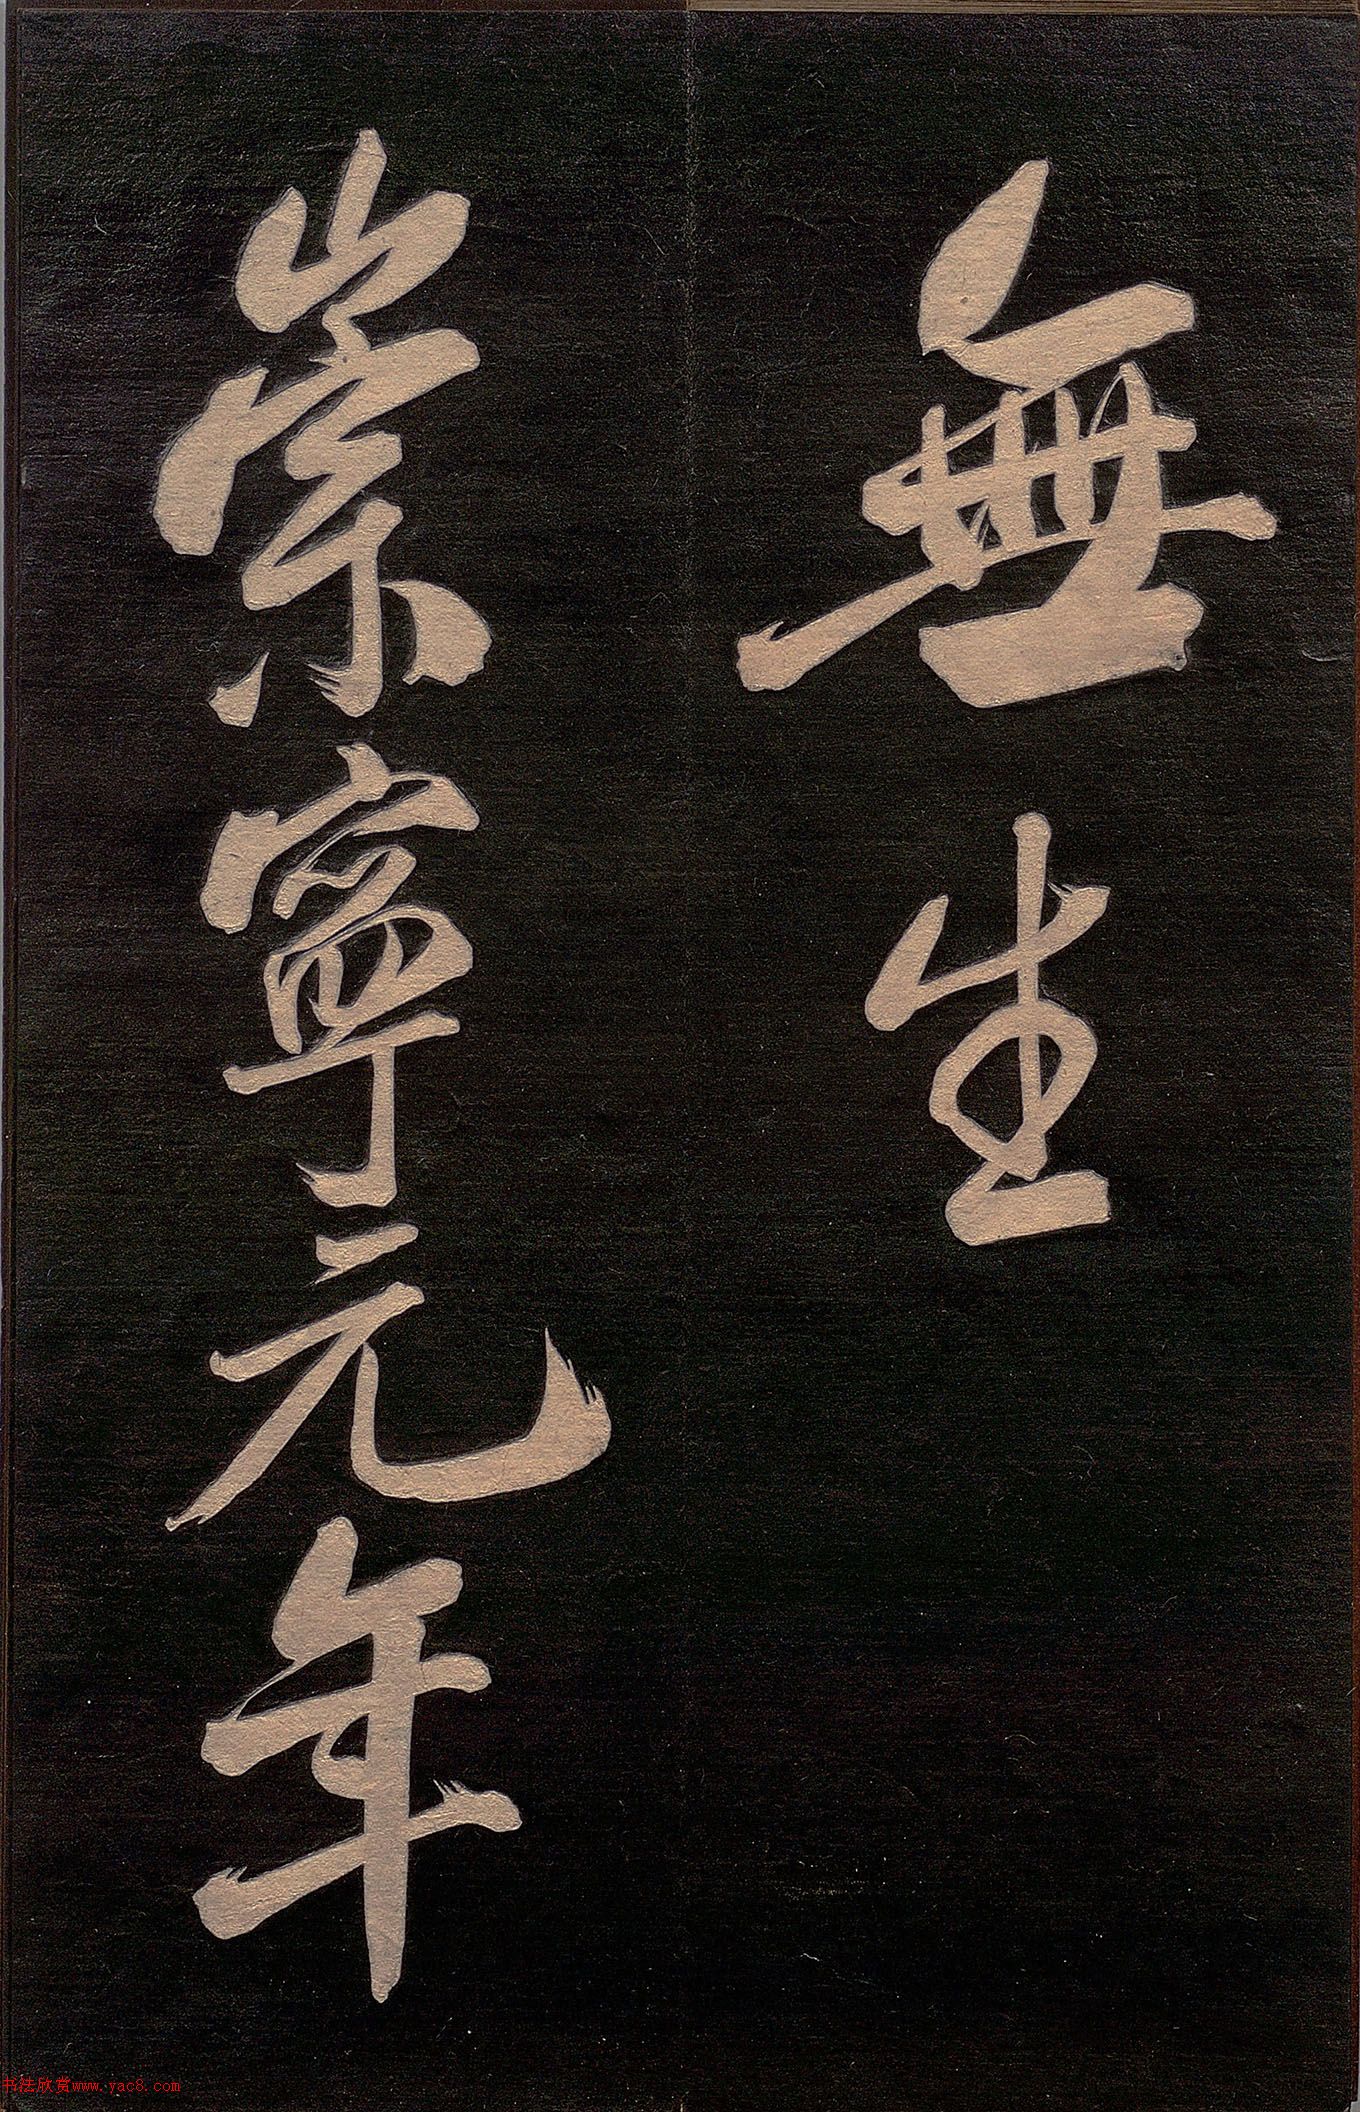 無生
崇寧元年
书法欣赏www.yac8.com